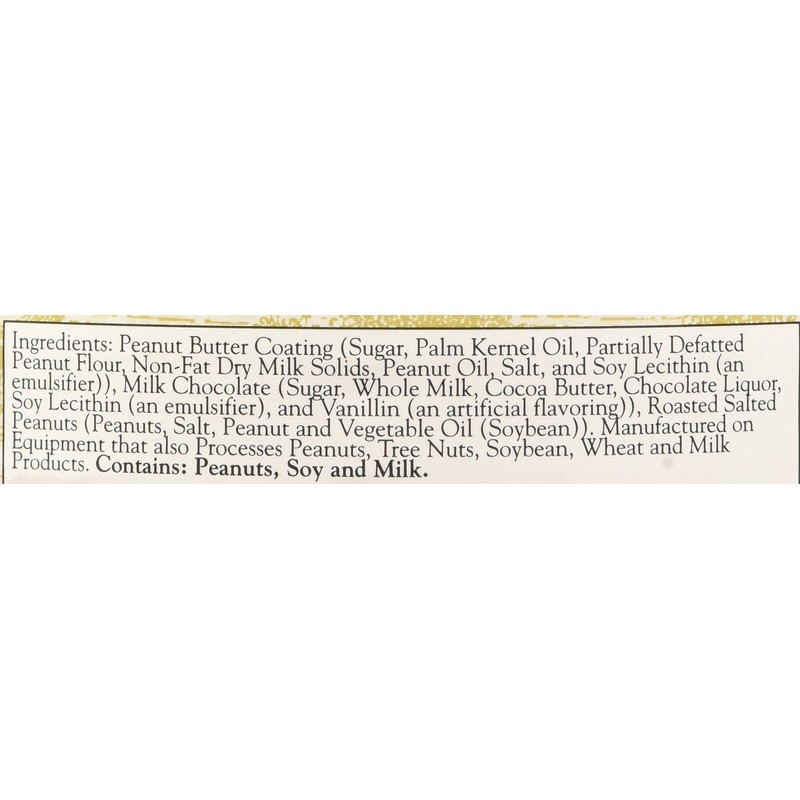 Ingredients: Peanut Butter Coating (Sugar, Palm Kernel Oil, Partially Defatted
Peanut Flour, Non-Fat Dry Milk Solids, Peanut Oil, Salt, and Soy Lecithin (an
emulsifier)), Milk Chocolate (Sugar, Whole Milk, Cocoa Butter, Chocolate Liquor,
Soy Lecithin (an emulsifier), and Vanillin (an artificial flavoring)), Roasted Salted
Peanuts (Peanuts, Salt, Peanut and Vegetable Oil (Soybean)). Manufactured on
Equipment that also Processes Peanuts, Tree Nuts, Soybean, Wheat and Milk
Products. Contains: Peanuts, Soy and Milk.